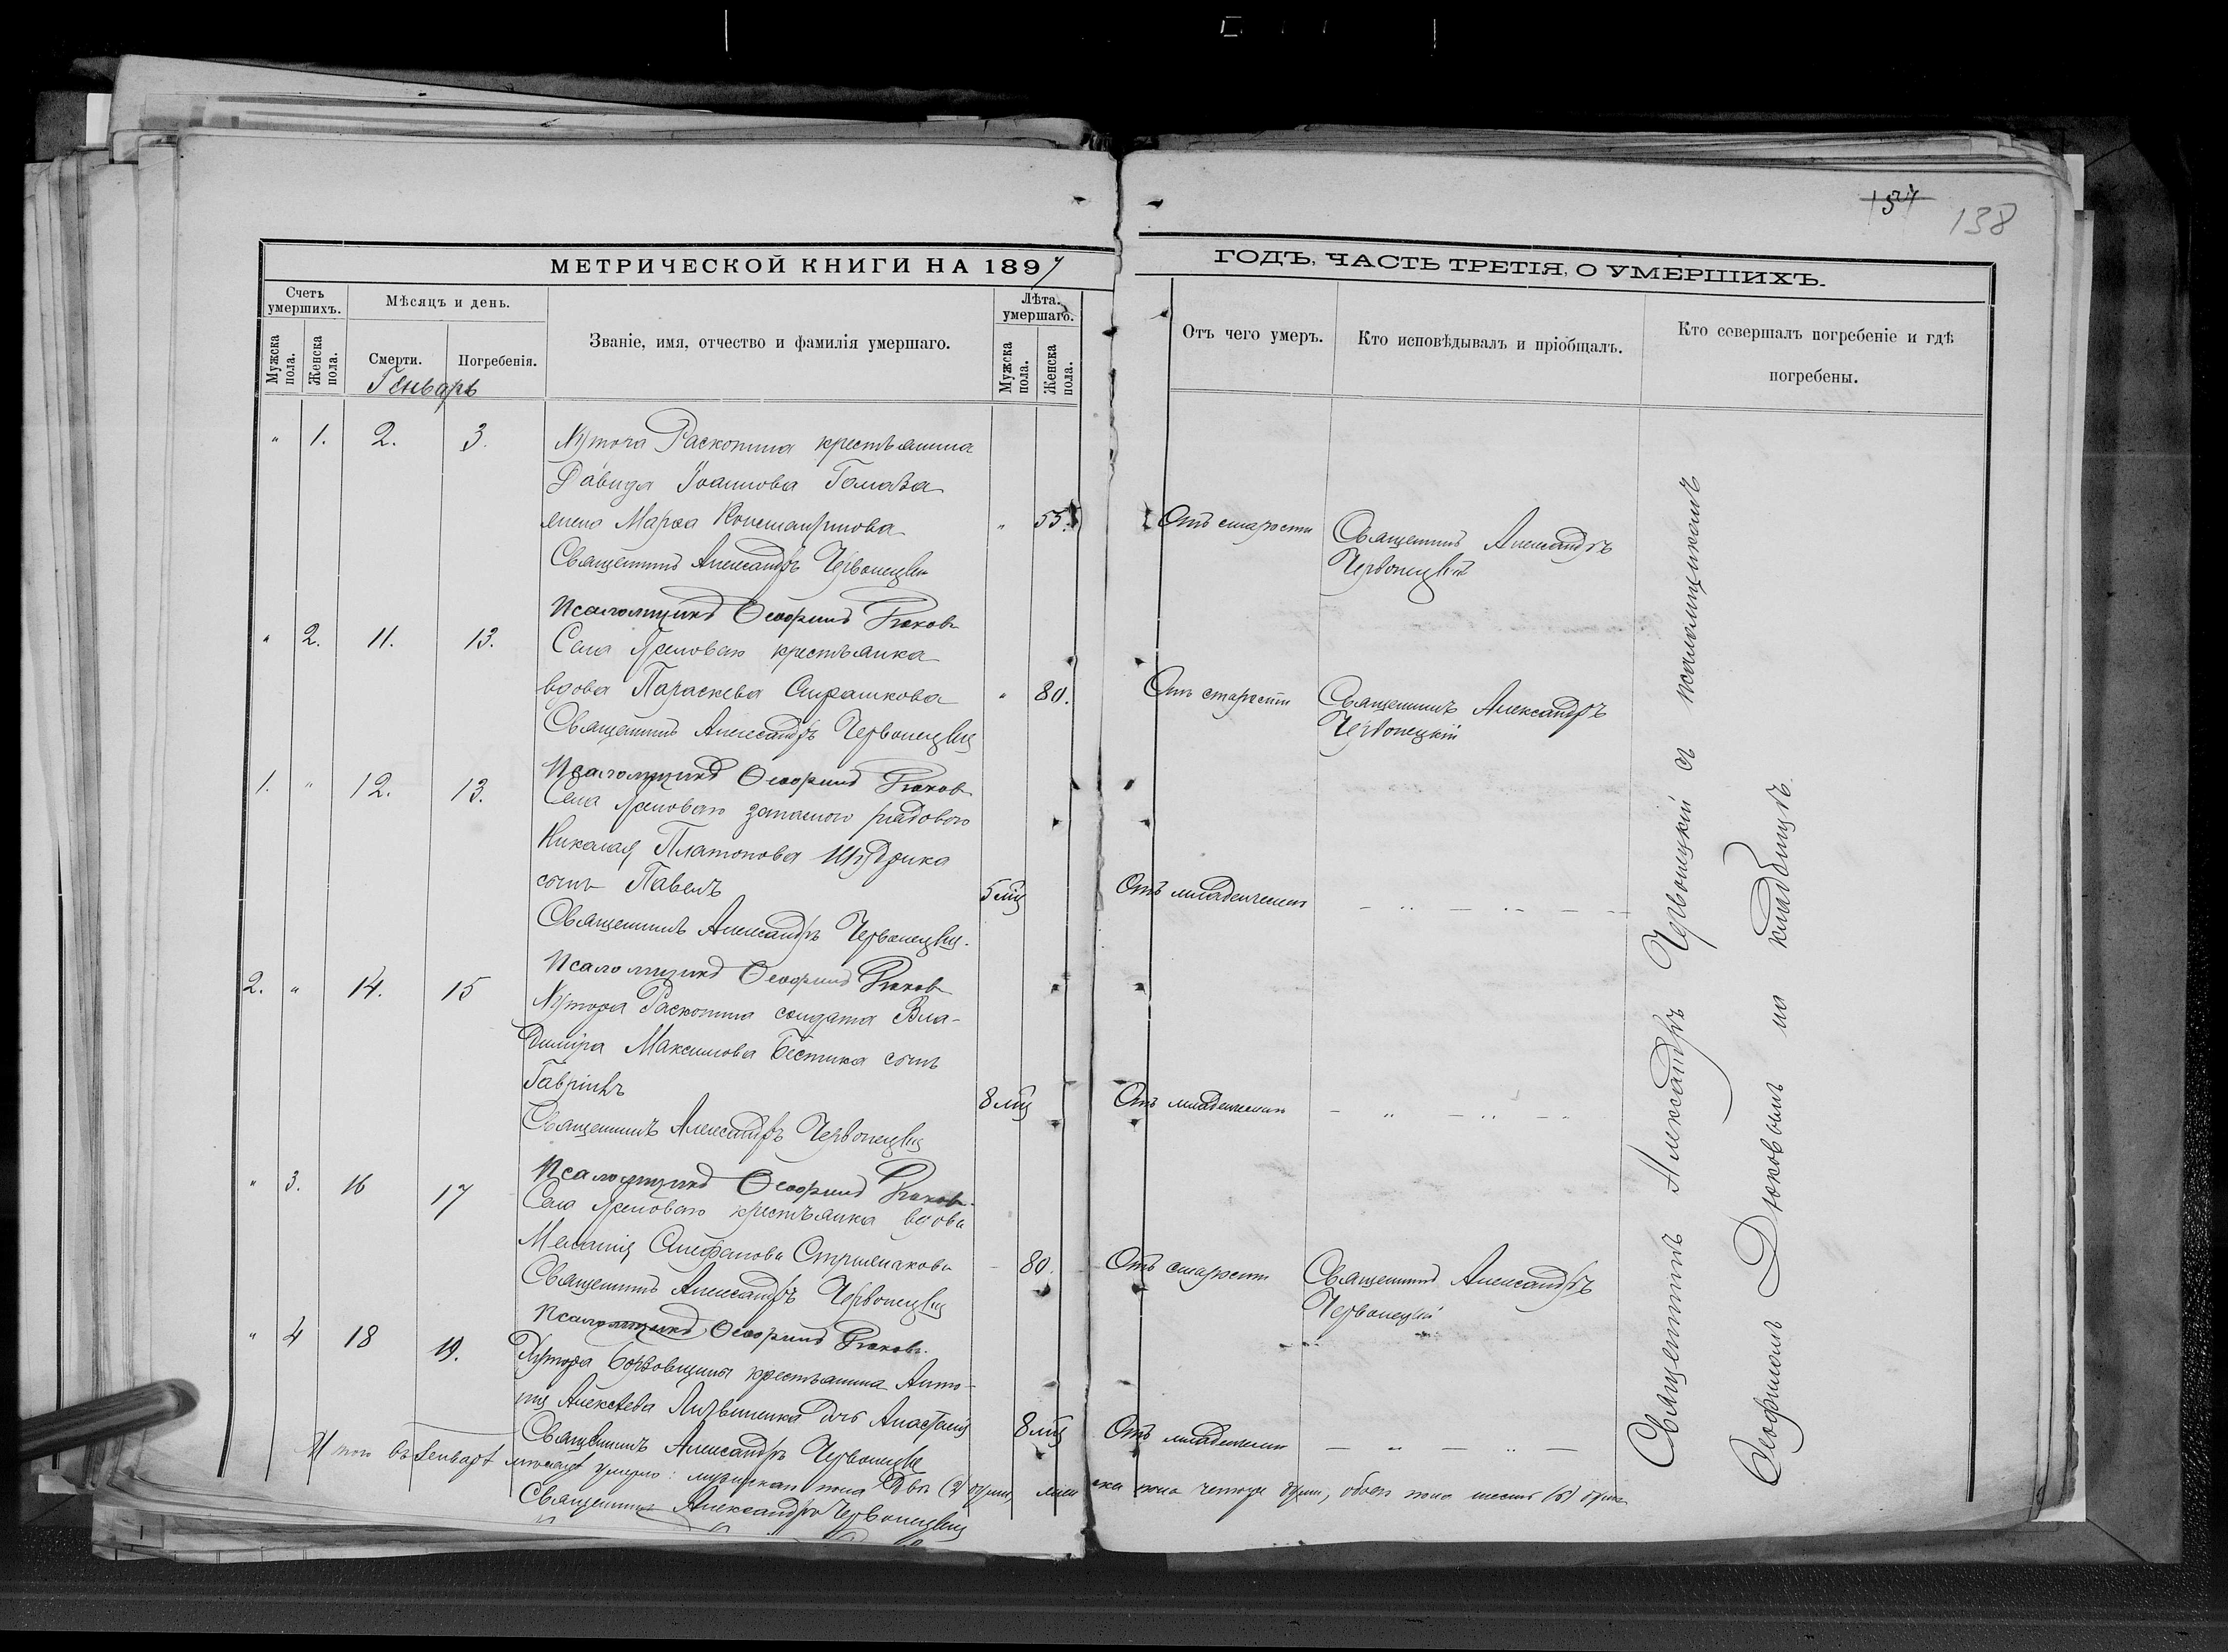 134 138
МЕТРИЧЕСКОЙ КНИГИ НА 1897 ГОДЪ, ЧАСТЬ ТРЕТІЯ, О УМЕРШИХЪ.
Счетъ умершихъ.
Мужска пола.
Женска пола.
Мѣсяцъ и день.
Смерти.
Погребенія.
Званіе, имя, отчество и фамилія умершаго.
Лѣта умершаго.
Мужска пола.
Женска пола.
Отъ чего умеръ.
Кто исповѣдывалъ и пріобщалъ.
Кто совершалъ погребеніе и гдѣ
погребены.
Генварь
" 1. 2. 3. Хутора Раскопина крестьянина
Давида Іоаннова
жена Марѳа Константинова " 55. Отъ старости Священникъ Александръ
Священникъ Александръ Червонецкій Червонецкій
Псаломщикъ Ѳеофилъ Дюковъ
" 2. 11. 13. Села крестьянка
вдова Параскева " 80. Отъ старости Священникъ Александръ
Священникъ Александръ Червонецкій Червонецкій
Псаломщикъ Ѳеофилъ Дюковъ
1. " 12. 13. Села запаснаго рядового
Николая Платонова
сынъ Павелъ 5 мц Отъ младенческ – " – " –
Священникъ Александръ Червонецкій.
Псаломщикъ Ѳеофилъ Дюковъ
2. " 14. 15 Хутора Раскопина солдата Вла-
диміра Максимова сынъ
Гавріилъ 8 мц Отъ младенческ – " – " –
Священникъ Александръ Червонецкій
Псаломщикъ Ѳеофилъ Дюковъ
" 3. 16 17 Села крестьянка вдова
Меланія 80. Отъ старости Священникъ Александръ
Священникъ Александръ Червонецкій Червонецкій
Псаломщикъ Ѳеофилъ Дюковъ.
" 4 18 19. Хутора крестьянина Анто-
нія Алексѣева Литвиненка дочь Анастасія 8 мц Отъ младенческ – " – " –
Священникъ Александръ Червонецкій
Итого въ Генварѣ мѣсяцѣ умерло: мужеска пола два (2) души, женска пола четыре души, обоего пола шесть (6) душъ
Священникъ Александръ Червонецкій
Священникъ Александръ Червонецкій съ псаломщикомъ
Ѳеофиломъ Дюковымъ на кладбищѣ.